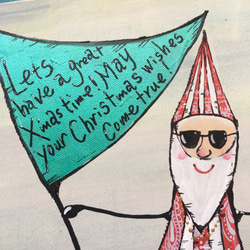 Let's
have a great
Xmas time! May
your Christmas wishes
come true!